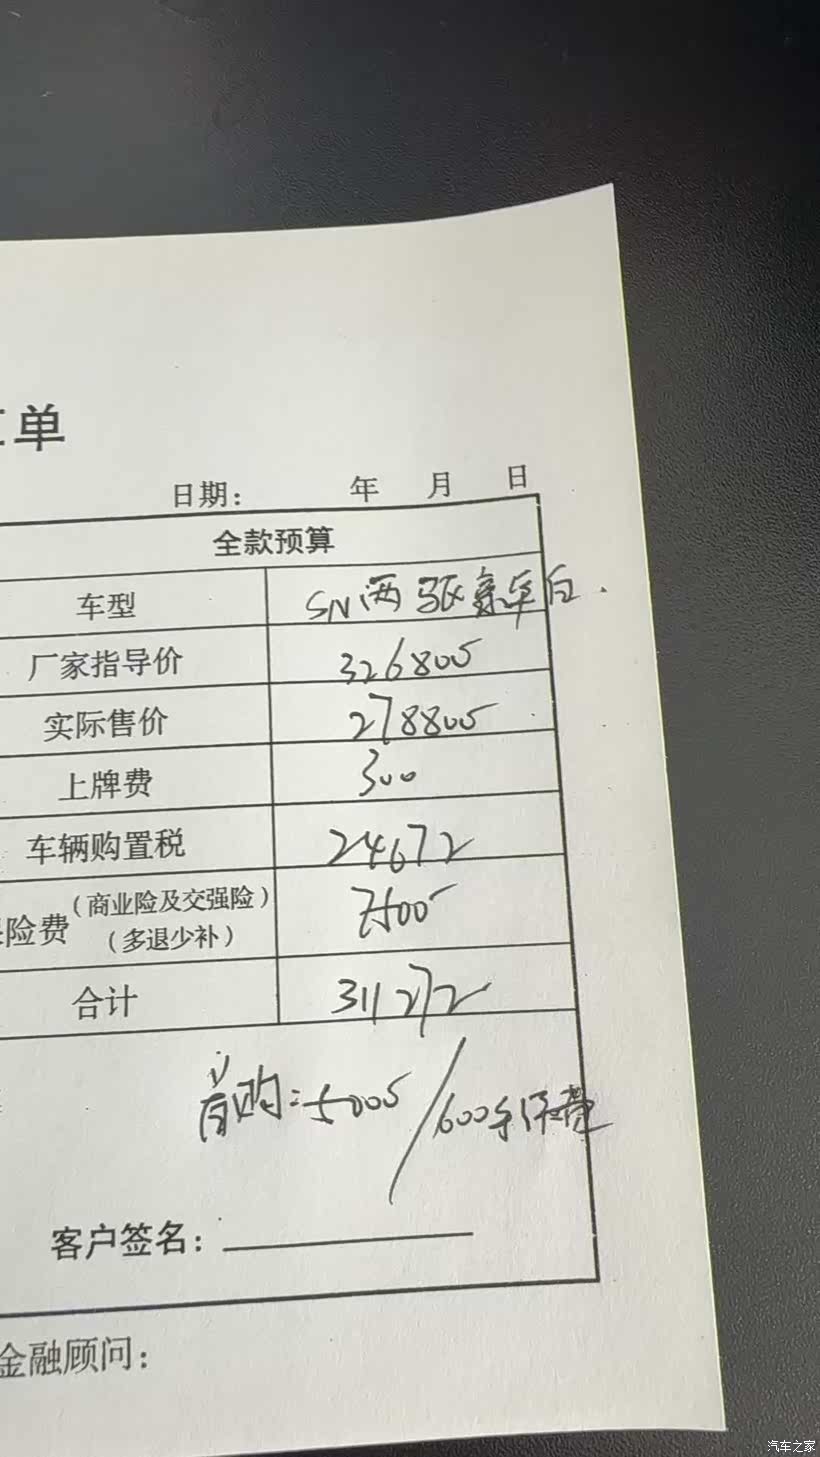 单
日期： 年 月 日
全款预算
车型 SN两驱 白
厂家指导价 326800
实际售价 278800
上牌费 300
车辆购置税 24672
险费（商业险及交强险）（多退少补） 7500
合计 311272
首购：5000 / 600 费
客户签名：
金融顾问：
汽车之家